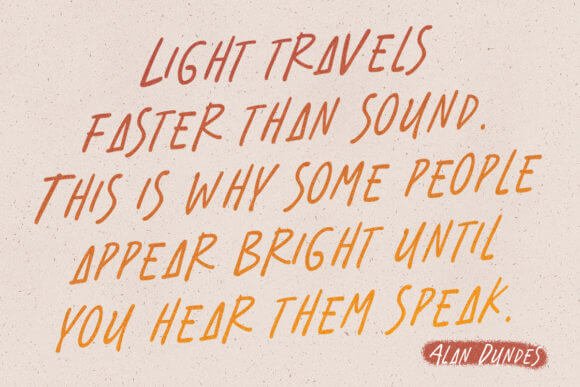 LIGHT TRAVELS
FASTER THAN SOUND.
THIS IS WHY SOME PEOPLE
APPEAR BRIGHT UNTIL
YOU HEAR THEM SPEAK.
ALAN DUNDES